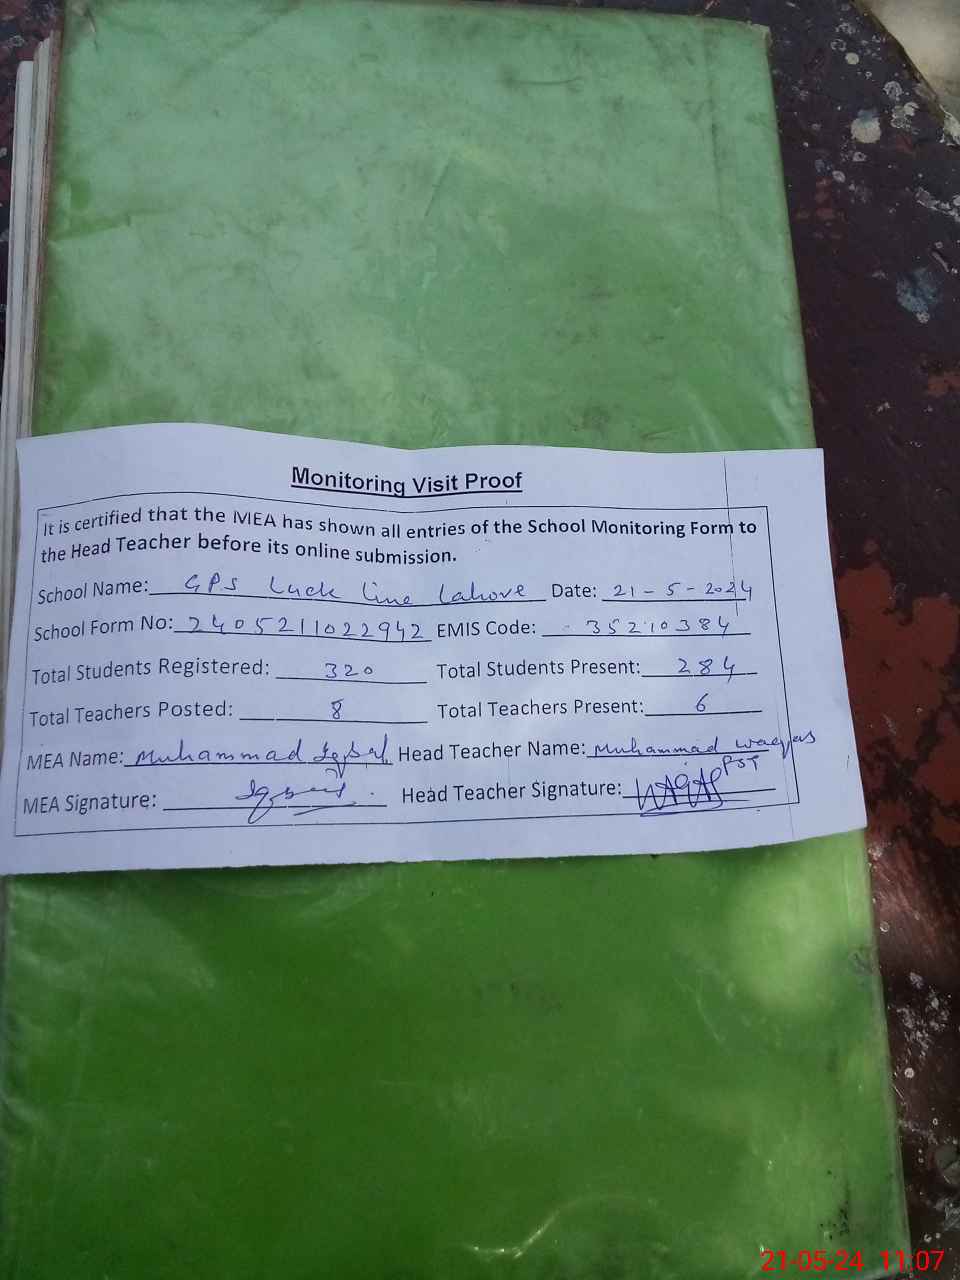 Monitoring Visit Proof
It is certified that the MEA has shown all entries of the School Monitoring Form to
the Head Teacher before its online submission.
School Name: GPS Luck Line Lahore Date: 21-5-2024
School Form No: 2405211022942 EMIS Code: 35210384
Total Students Registered: 320 Total Students Present: 284
Total Teachers Posted: 8 Total Teachers Present: 6
MEA Name: Muhammad Iqbal Head Teacher Name: Muhammad Waqas
PST
MEA Signature: Iqbal Head Teacher Signature: WAQAS
21-05-24 11:07